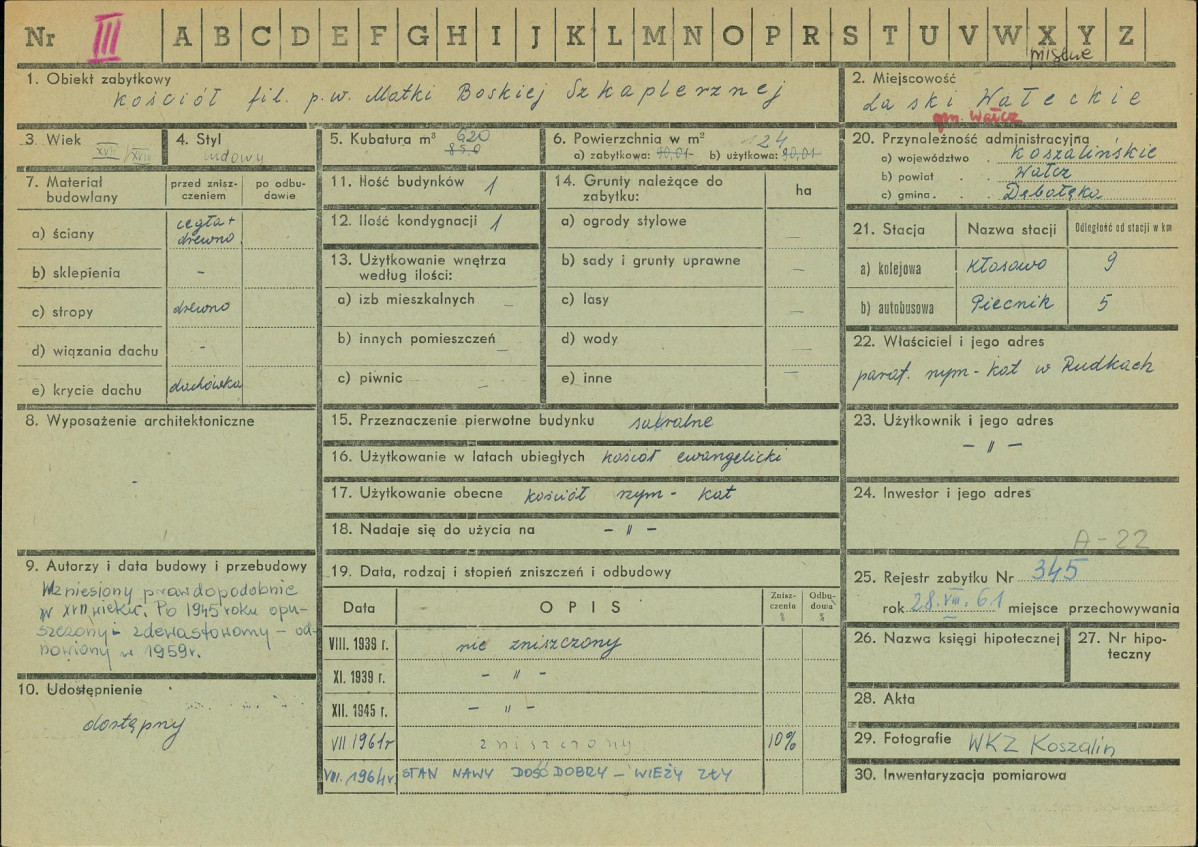 Nr III A B C D E F G H I J K L M N O P R S T U V W X Y Z
1. Obiekt zabytkowy
kościół fil. p.w. Matki Boskiej Szkaplerznej
2. Miejscowość
Łaski Wałeckie
gm. Wałcz
3. Wiek
XVII / XVIII
4. Styl
ludowy
5. Kubatura m³ 620
850
6. Powierzchnia w m² 124
a) zabytkowa: 90,01 b) użytkowa: 90,01
7. Materiał budowlany
przed zniszczeniem
po odbudowie
a) ściany cegła + drewno
b) sklepienia -
c) stropy drewno
d) wiązania dachu -
e) krycie dachu dachówka
8. Wyposażenie architektoniczne
-
9. Autorzy i data budowy i przebudowy
Wzniesiony prawdopodobnie
w XVII wieku. Po 1945 roku opu-
szczony i zdewastowany - od-
nowiony w 1959 r.
10. Udostępnienie
dostępny
11. Ilość budynków 1
12. Ilość kondygnacji 1
13. Użytkowanie wnętrza
według ilości:
a) izb mieszkalnych -
b) innych pomieszczeń -
c) piwnic -
14. Grunty należące do
zabytku:
ha
a) ogrody stylowe -
b) sady i grunty uprawne -
c) lasy -
d) wody
e) inne -
15. Przeznaczenie pierwotne budynku sakralne
16. Użytkowanie w latach ubiegłych kościół ewangelicki
17. Użytkowanie obecne kościół rzym - kat
18. Nadaje się do użycia na - " -
19. Data, rodzaj i stopień zniszczeń i odbudowy
Data OPIS Zniszczenia % Odbudowa %
VIII. 1939 r. nie zniszczony
XI. 1939 r. - " -
XII. 1945 r. - " -
VII 1961 r zniszczony 10%
VIII. 1964 r STAN NAWY DOŚĆ DOBRY - WIEŻY ZŁY
20. Przynależność administracyjna
a) województwo koszalińskie
b) powiat Wałcz
c) gmina Dębołęka
21. Stacja Nazwa stacji Odległość od stacji w km
a) kolejowa Kłosowo 9
b) autobusowa Piecnik 5
22. Właściciel i jego adres
paraf. rzym - kat w Rudkach
23. Użytkownik i jego adres
- " -
24. Inwestor i jego adres
A-22
25. Rejestr zabytku Nr 345
rok 28. VIII. 61 miejsce przechowywania
26. Nazwa księgi hipotecznej
27. Nr hipo-
teczny
28. Akta
29. Fotografie WKZ Koszalin
30. Inwentaryzacja pomiarowa